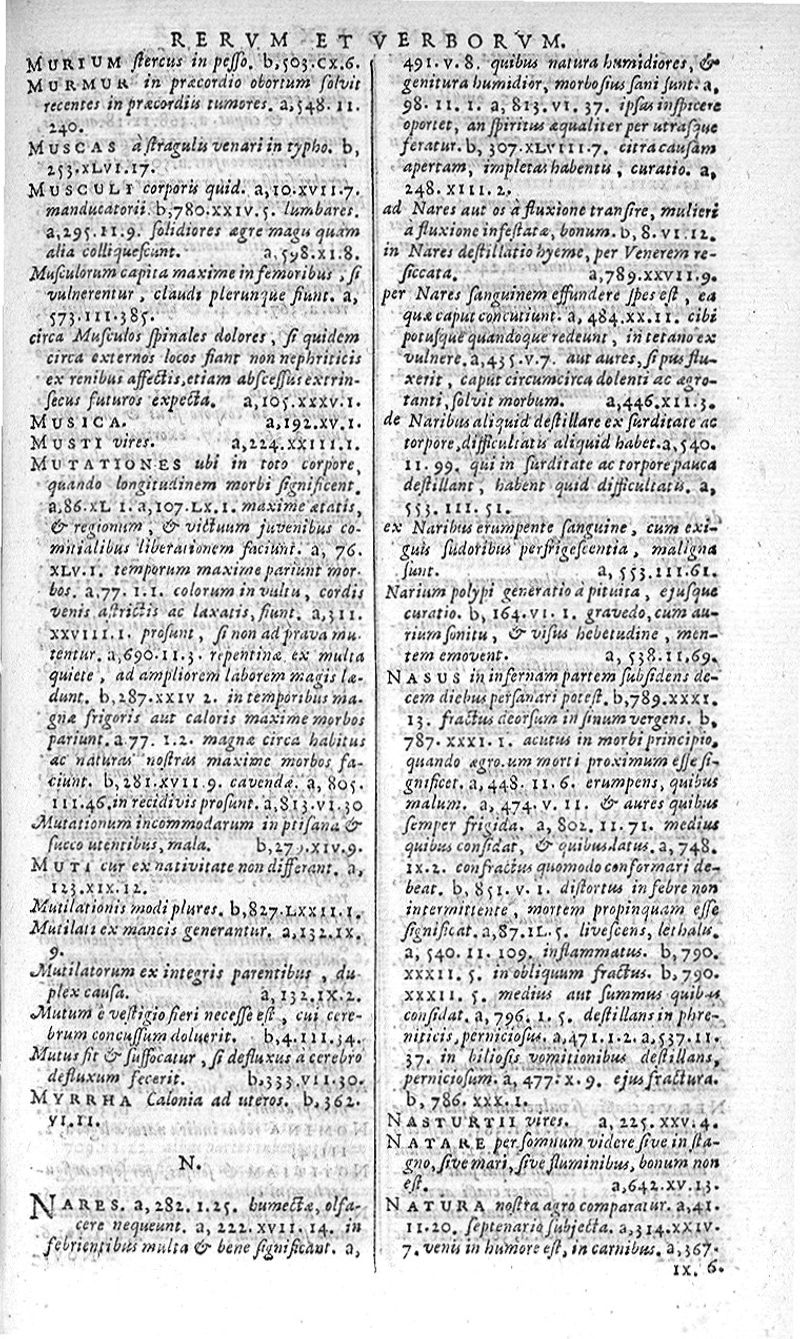 RERVM ET VERBORVM.
MURIUM stercus in pesso. b,503.CX.6.
MURMUR in præcordio obortum solvit
recentes in præcordiis tumores. a,548.II.
240.
MUSCAS à stragulis venari in typho. b,
253.XLVI.17.
MUSCULI corporis quid. a,10.XVII.7.
manducatorii. b,780.XXIV.5. lumbares.
a,295.II.9. solidiores ægre magis quam
alia colliquescunt. a,598.XI.8.
Musculorum capita maxime in femoribus, si
vulnerentur, claudi plerunque fiunt. a,
573.III.385.
circa Musculos spinales dolores, si quidem
circa externos locos fiant non nephriticis
ex renibus affectis, etiam abscessus extrin-
secus futuros expecta. a,105.XXXV.1.
MUSICA. a,192.XV.1.
MUSTI vires. a,224.XXIII.1.
MUTATIONES ubi in toto corpore,
quando longitudinem morbi significent.
a,86.XL I. a,107.LX.1. maxime ætatis,
& regionum, & victuum juvenibus co-
mitialibus liberationem faciunt. a, 76.
XLV.1. temporum maxime pariunt mor-
bos. a,77. I.1. colorum in vultu, cordis
venis astrictis ac laxatis, fiunt. a,311.
XXVIII.1. prosunt, si non ad prava mu-
tentur. a,690.II.3. repentinæ ex multa
quiete, ad ampliorem laborem magis læ-
dunt. b,287.XXIV 2. in temporibus ma-
gnæ frigoris aut caloris maxime morbos
pariunt. a.77. I.2. magnæ circa habitus
ac naturas nostras maxime morbos fa-
ciunt. b,281.XVII.9. cavendæ. a, 805.
III.46. in recidivis prosunt. a,813.VI.30
Mutationum incommodarum in ptisana &
succo utentibus, mala. b,279.XIV.9.
MUTI cur ex nativitate non differant. a,
123.XIX.12.
Mutilationis modi plures. b,827.LXXII.1.
Mutilati ex mancis generantur. a,132.IX.
9.
Mutilatorum ex integris parentibus, du-
plex causa. a,132.IX.2.
Mutum è vestigio fieri necesse est, cui cere-
brum concussum doluerit. b,4.III.34.
Mutus fit & suffocatur, si defluxus à cerebro
defluxum fecerit. b,333.VII.30.
MYRRHA Calonia ad uteros. b,362.
VI.11.
N.
NARES. a,282. I.25. humectæ, olfa-
cere nequeunt. a, 222.XVII.14. in
febrientibus multa & bene significant. a,
491.V.8. quibus natura humidiores, &
genitura humidior, morbosius sani sunt. a,
98.II.1. a, 813.VI.37. ipsas inspicere
oportet, an spiritus æqualiter per utrasque
feratur. b, 307.XLVIII.7. citra causam
apertam, impletas habentis, curatio. a,
248.XIII.2.
ad Nares aut os à fluxione transire, mulieri
à fluxione infestatæ, bonum. b,8.VI.12.
in Nares destillatio hyeme, per Venerem re-
siccata. a,789.XXVII.9.
per Nares sanguinem effundere spes est, ea
quæ caput concutiunt. a, 484.XX.11. cibi
potusque quandoque redeunt, in tetano ex
vulnere. a,435.V.7. aut aures, si pus flu-
xerit, caput circumcirca dolenti ac ægro-
tanti, solvit morbum. a,446.XII.3.
de Naribus aliquid destillare ex surditate ac
torpore, difficultatis aliquid habet. a,540.
II.99. qui in surditate ac torpore pauca
destillant, habent quid difficultatis. a,
553.III.51.
ex Naribus erumpente sanguine, cum exi-
guis sudoribus perfrigescentia, maligna
sunt. a, 553.III.61.
Narium polypi generatio à pituita, ejusque
curatio. b, 164.VI.1. gravedo, cum au-
rium sonitu, & visus hebetudine, men-
tem emovent. a, 538.II,69.
NASUS in infernam partem subsidens de-
cem diebus persanari potest. b,789.XXXI.
13. fractus deorsum in sinum vergens. b,
787.XXXI.1. acutus in morbi principio,
quando ægro.um morti proximum esse si-
gnificet. a,448.II.6. erumpens, quibus
malum. a, 474.V.11. & aures quibus
semper frigida. a, 802.II.71. medius
quibus considat, & quibus latus. a,748.
IX.2. confractus quomodo conformari de-
beat. b, 851.V.1. distortus in febre non
intermittente, mortem propinquam esse
significat. a,87.IL.5. livescens, lethalis.
a, 540.II.109. inflammatus. b, 790.
XXXII.5. in obliquum fractus. b,790.
XXXII.5. medius aut summus quibus
considat. a, 796. I.5. destillans in phre-
niticis, perniciosus. a,471.I.2. a,537.II.
37. in biliosis vomitionibus destillans,
perniciosum. a, 477.X.9. ejus fractura.
b, 786. XXX.1.
NASTURTII vires. a, 225.XXV.4.
NATARE per somnum videre sive in sta-
gno, sive mari, sive fluminibus, bonum non
est. a,642.XV.13.
NATURA nostra agro comparatur. a,41.
II.20. septenario subjecta. a,314.XXIV.
7. venis in humore est, in carnibus. a,367.
IX. 6.